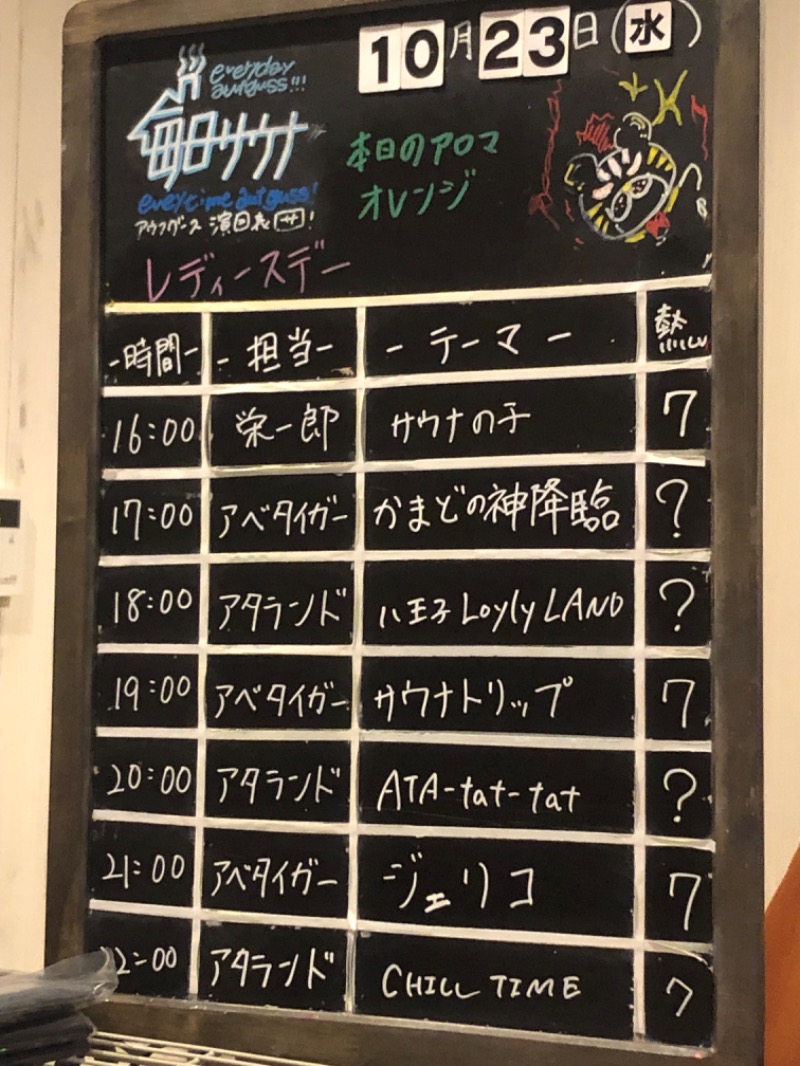 everyday
autguss!!!
10月23日(水)
毎日サウナ
本日のアロマ
オレンジ
everytime autguss!
アウフグース 演目表 サ!
レディースデー
-時間- -担当- -テーマ- 熱
16:00 栄一郎 サウナの子 7
17:00 アベタイガー かまどの神降臨 ?
18:00 アタランド 八王子 Loyly LAND ?
19:00 アベタイガー サウナトリップ 7
20:00 アタランド ATA-tat-tat ?
21:00 アベタイガー ジェリコ 7
22:00 アタランド CHILL TIME 7